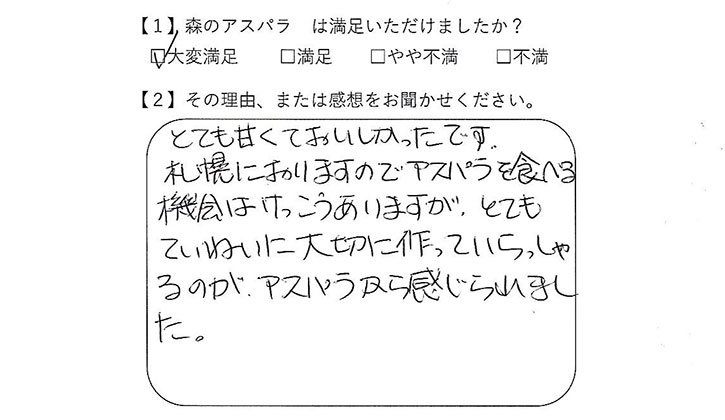 【1】森のアスパラ　は満足いただけましたか？
☑大変満足　□満足　□やや不満　□不満
【2】その理由、または感想をお聞かせください。
とても甘くておいしかったです.
札幌におりますのでアスパラを食べる
機会はけっこうありますが、とても
ていねいに大切に作っていらっしゃ
るのが、アスパラから感じられまし
た。